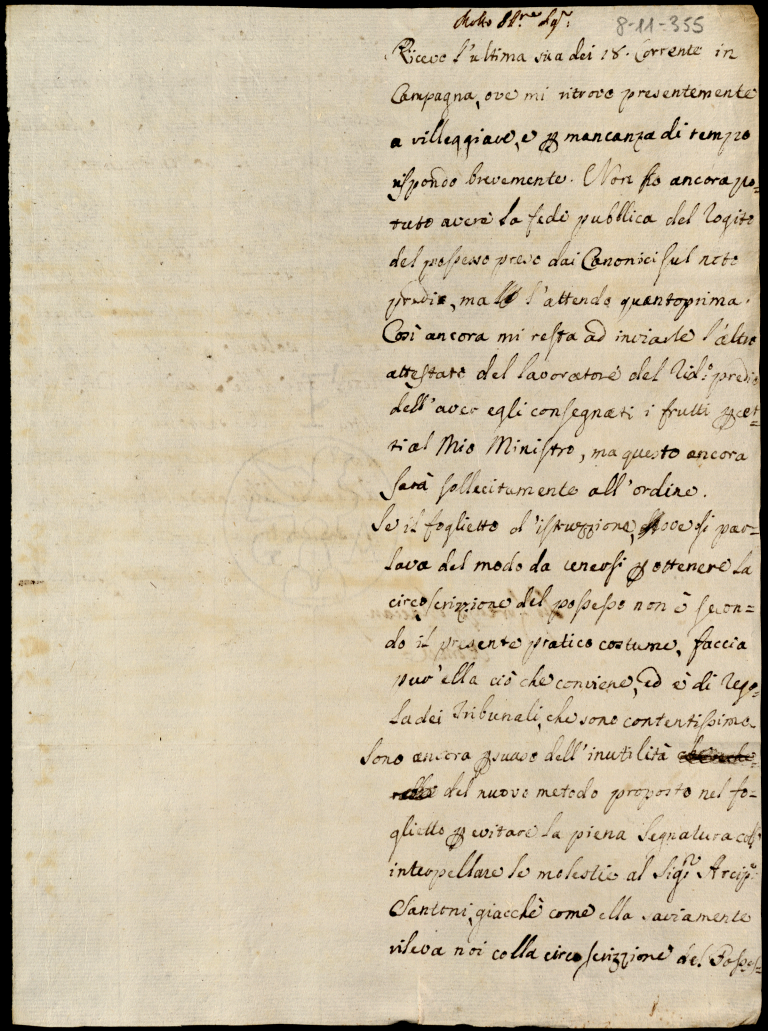 Molto Ill.re Sig.r
8-11-355
Ricevo l'ultima sua dei 18. Corrente in
Campagna, ove mi ritrovo presentemente
a villeggiare, e p mancanza di tempo
rispondo brevemente. Non ho ancora po=
tuto avere la fede pubblica del Rogito
del possesso preso dai Canonici sul noto
predio, ma l'attendo quantoprima.
Così ancora mi resta ad inviarle l'altro
attestato del lavoratore del Rid.o predio
dell'aver egli consegnati i frutti
al Mio Ministro, ma questo ancora
sarà sollecitamente all'ordine.
Se il foglietto d'istruzzione, ove si par=
lava del modo da tenersi p ottenere la
circoscrizzione del possesso non è secon=
do il presente pratico costume, faccia
pur'ella ciò che conviene, ed è di rego=
la dei Tribunali, che sono contentissimo
Sono ancora psuaso dell'inutilità
del nuovo metodo proposto nel fo=
glietto p evitare la piena Segnatura coll'
interpellare le molestie al Sig.r Arcip.e
Santoni, giacchè come ella saviamente
rileva noi colla circoscrizzione del Posses=